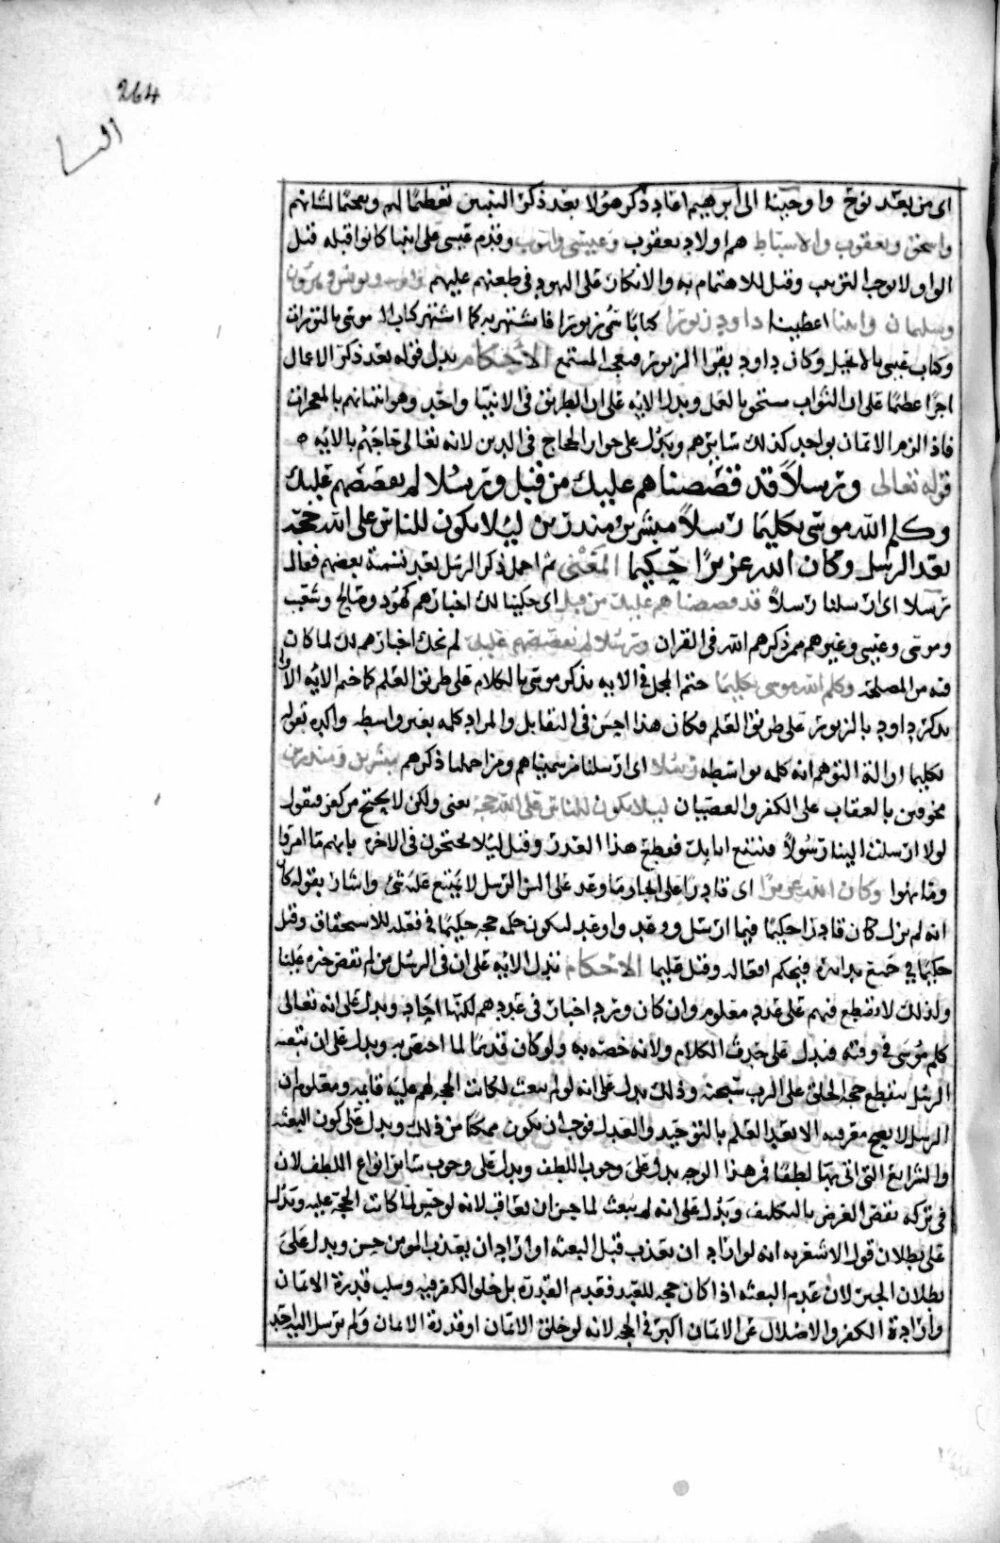 264
النسا
اى من بعد نوح واوحينا الى ابرهيم اعاد ذكر هولا بعد ذكر النبيين تعظيمًا لهم وتفخيمًا لشانهم
واسحق ويعقوب والاسباط هم اولاد يعقوب وعيسى وايوب وقدم عيسى على انبيا كانوا قبله قيل
الواو لا توجب الترتيب وقيل للاهتمام به والانكار على اليهود فى طعنهم عليهم ويونس وهرون
وسليمان واتينا اعطينا داود زبورا كتابًا سمى زبورا فاشتهر به كما اشتهر كتاب موسى بالتورات
وكتاب عيسى بالانجيل وكان داود يقرا الزبور المستمع الاحكام يدل قوله بعد ذكر الاعمال
اجرًا عظيمًا على ان الثواب مستحق بالعمل ويدل الايه على ان الطريق فى الانبيا واحد وهو اتيانهم بالمعجزات
فاذا لزم الايمان بواحد كذلك سايرهم ويدل على جواز الحجاج فى الدين لانه تعالى حاجهم بالايه ه
قوله تعالى ورسلاً قد قصصناهم عليك من قبل ورسلا لم نقصصهم عليك
وكلم الله موسى تكليما رسلاً مبشرين ومنذرين ليلا يكون للناس على الله حجة
بعد الرسل وكان الله عزيزًا حكيما المعنى ثم اجمل ذكر الرسل بعد تسمية بعضهم فقال
ورسلا اى ارسلنا رسلاً قد قصصناهم عليك من قبل اى حكينا لك اخبارهم كهود وصالح وشعيب
وموسى وعيسى وغيرهم ممن ذكرهم الله فى القران ورسلا لم نقصصهم عليك لم نحك اخبارهم لك لما كان
فيه من المصلحة وكلم الله موسى تكليمًا ختم فى الايه بذكر موسى بالكلام على طريق العلم كما ختم الايه الاولى
بذكر داود بالزبور على طريق العلم فكان هذا احسن فى التقابل والمراد كلمه بغير واسطه واكده بقوله
تكليما ازالة لتوهم انه كلمه بواسطه رسلا اى ارسلنا من سميناهم ومن اجملنا ذكرهم مبشرين ومنذرين
مخوفين بالعقاب على الكفر والعصيان ليلا يكون للناس على الله حجة يعنى ولكن لا يحتج من كفر فيقول
لولا ارسلت الينا رسولاً فنتبع اياتك فقطع هذا العذر وقيل ليلا يحتجون فى الاخرة بانهم ما امروا
وما نهوا وكان الله عزيزًا اى قادرًا على انجاز ما وعد على السن الرسل لا يمتنع عليه شى واشار بقوله كان
انه لم يزل كان قادرًا حكيمًا فيما ارسل ووعد واوعد ليكون حكمه حجه حكيمًا فى فعله للاستحقاق وقيل
حكيمًا فى جميع تدابيره فيحكم افعاله وقيل عليما الاحكام تدل الايه على ان فى الرسل من لم نقص خبره علينا
ولذلك لا نقطع فيهم على عدد معلوم وان كان ورد اخبار فى عددهم لكنها احاد ويدل على انه تعالى
كلم موسى فى وقته فيدل على حدث الكلام ولانه خصه به ولو كان قديمًا لما اختص به ويدل على ان ببعثه
الرسل ينقطع حجة الخلق على الرب سبحنه وذلك يدل على انه لو لم يبعث لكانت الحجه لهم عليه قايمه ومعلوم ان
الرسل لا يصح معرفته الا بعد العلم بالتوحيد والعدل فوجب ان يكون ممكنًا من ذلك ويدل على كون البعثه
والشرايع التى اتى بها لطفًا فمن هذا الوجه يدل على وجوب اللطف ويدل على وجوب ساير انواع اللطف لان
فى تركه نقض الغرض بالتكليف ويدل على انه لو لم يبعث لما حسن ان يعاقب لانه لو حسن لما كانت الحجه عليه ويدل
على بطلان قول الاشعريه انه لو اراد ان يعذب قبل البعثه او اراد ان يعذب المومن حسن ويدل على
بطلان الجبر لان عدم البعثه اذا كان حجه للعبد فعدم القدرة بل خلق الكفر فيه وسلب قدرة الايمان
وارادة الكفر والاضلال عن الايمان اكبر فى الحجه لانه لو خلق الايمان او قدرة الايمان ولم يرسل اليه احد